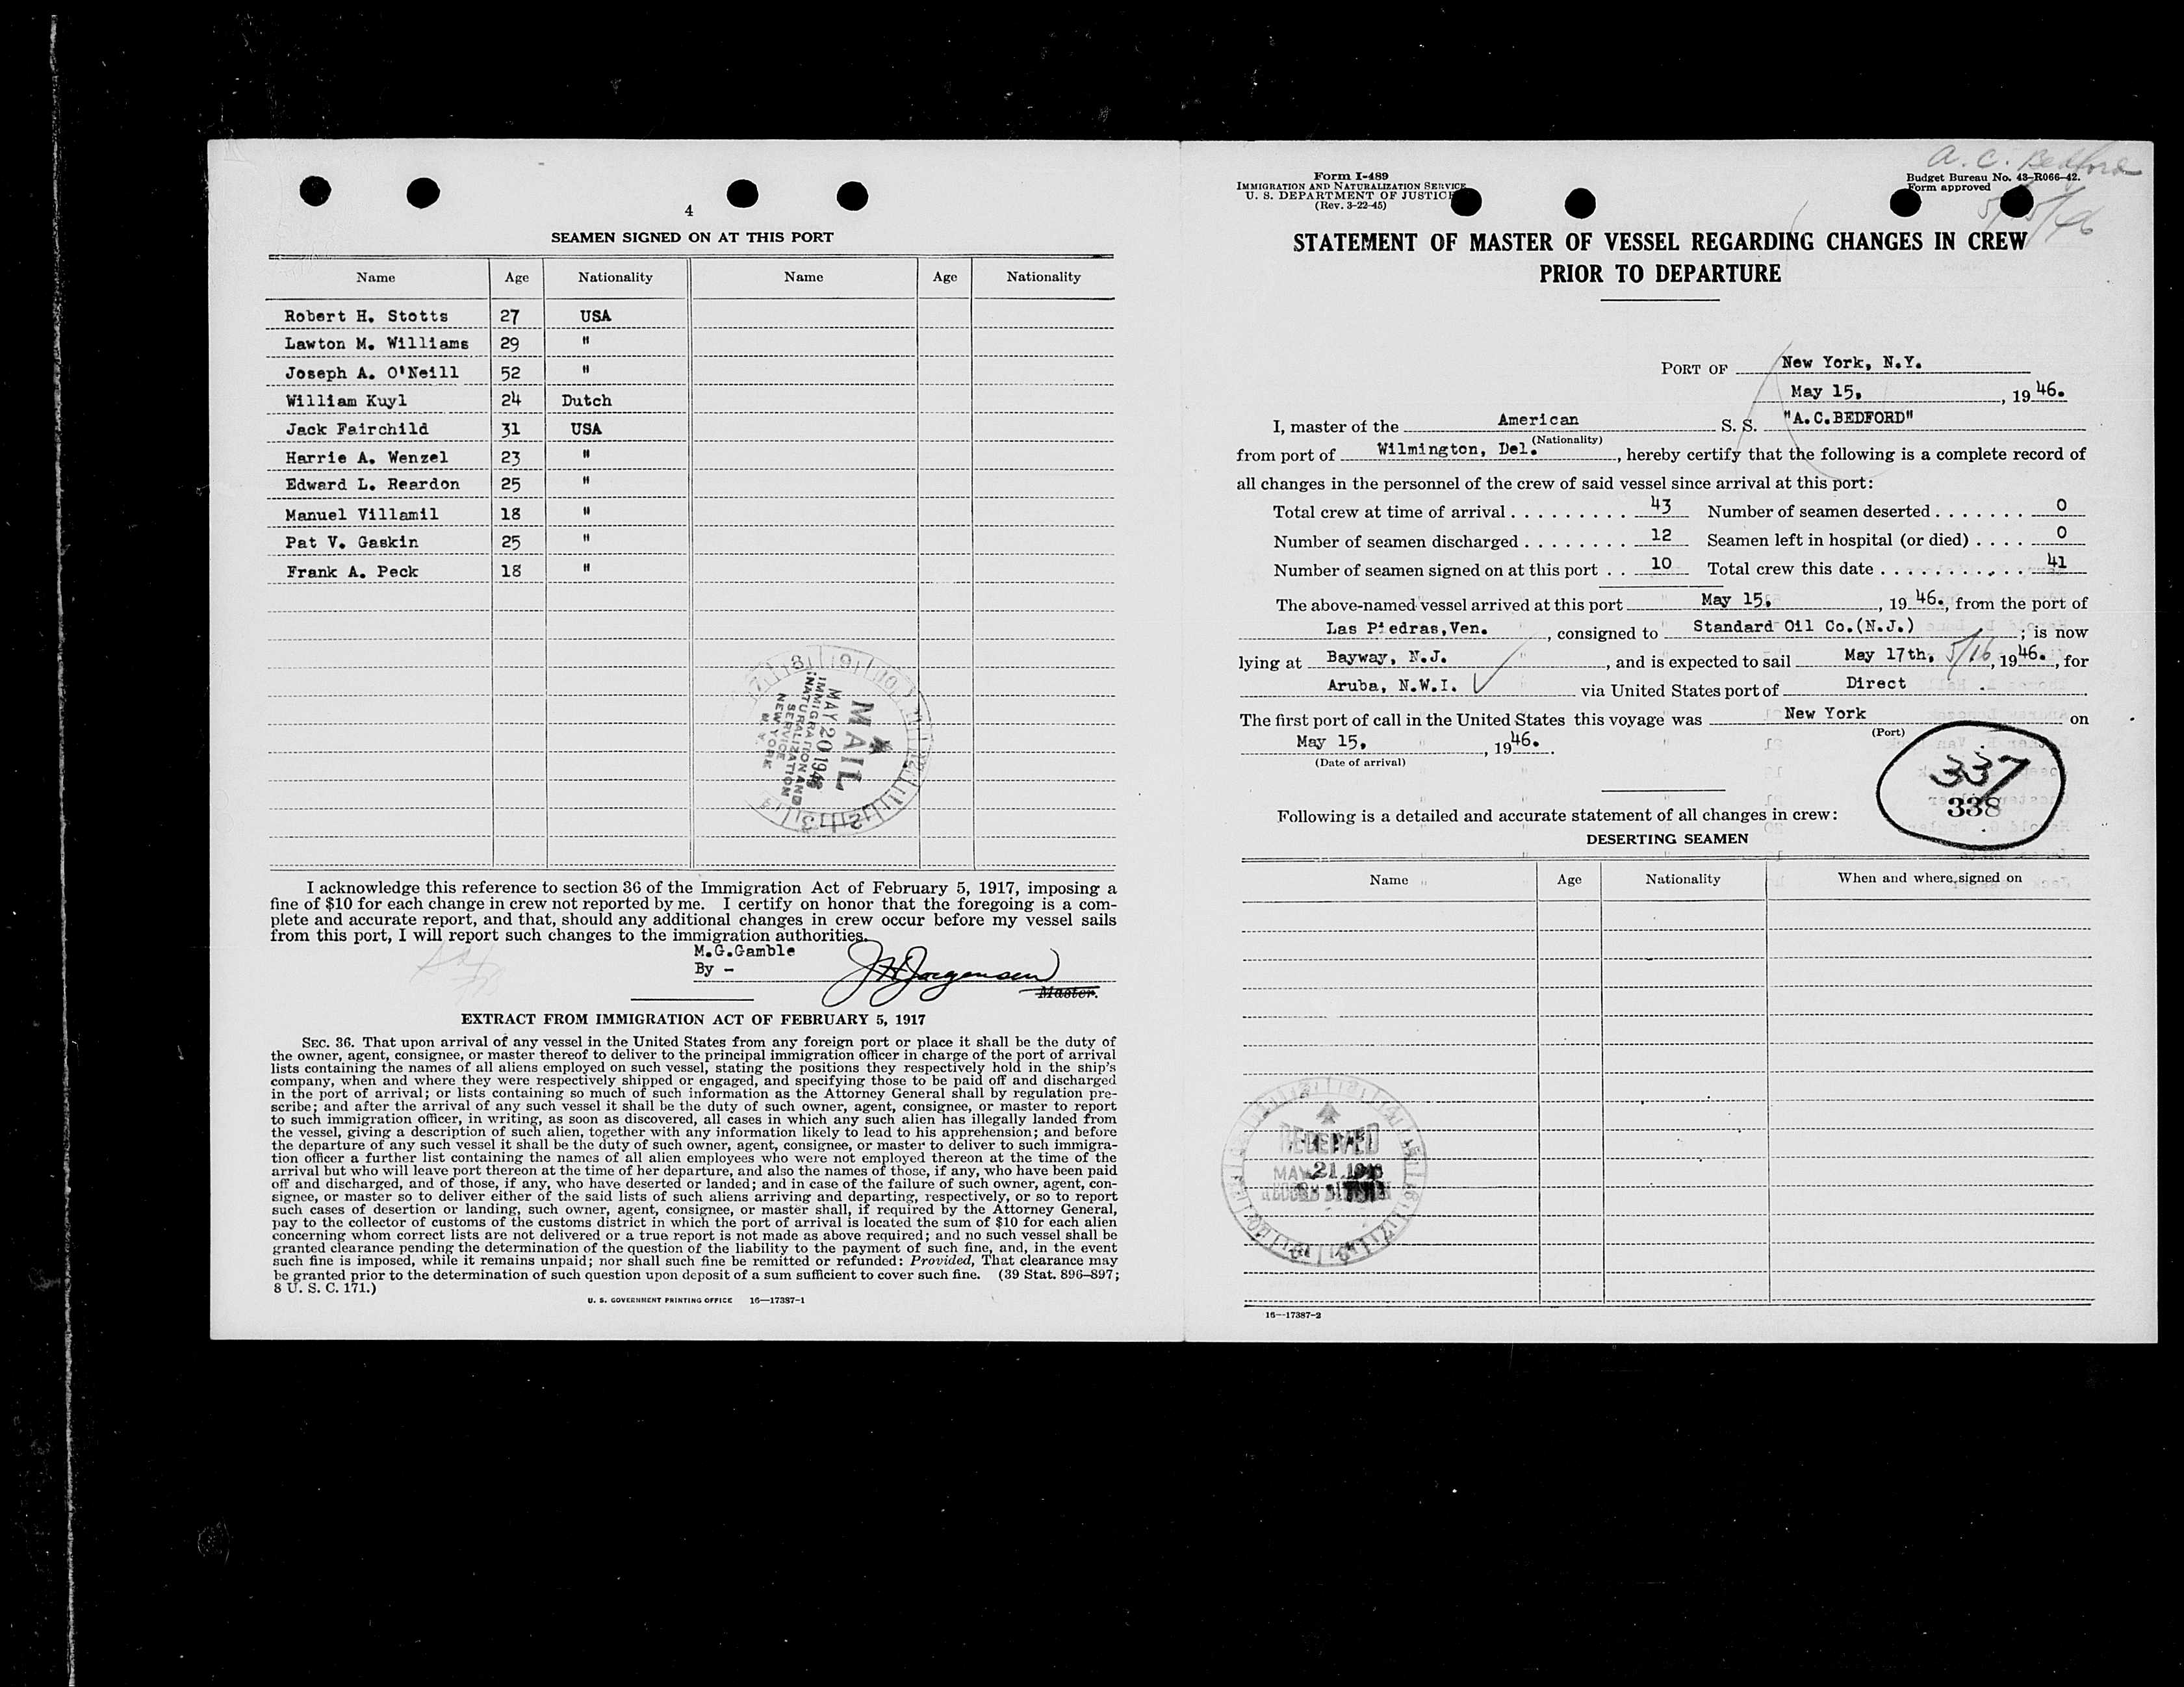 4
SEAMEN SIGNED ON AT THIS PORT
Name Age Nationality Name Age Nationality
Robert H. Stotts 27 USA
Lawton M. Williams 29 "
Joseph A. O'Neill 52 "
William Kuyl 24 Dutch
Jack Fairchild 31 USA
Harrie A. Wenzel 23 "
Edward L. Reardon 25 "
Manuel Villamil 18 "
Pat V. Gaskin 25 "
Frank A. Peck 18 "
MAIL
MAY 20 1946
IMMIGRATION AND
NATURALIZATION
SERVICE
NEW YORK
N.Y.
I acknowledge this reference to section 36 of the Immigration Act of February 5, 1917, imposing a
fine of $10 for each change in crew not reported by me. I certify on honor that the foregoing is a com-
plete and accurate report, and that, should any additional changes in crew occur before my vessel sails
from this port, I will report such changes to the immigration authorities.
M.G.Gamble
By - J H Jorgensen
Master.
EXTRACT FROM IMMIGRATION ACT OF FEBRUARY 5, 1917
SEC. 36. That upon arrival of any vessel in the United States from any foreign port or place it shall be the duty of
the owner, agent, consignee, or master thereof to deliver to the principal immigration officer in charge of the port of arrival
lists containing the names of all aliens employed on such vessel, stating the positions they respectively hold in the ship's
company, when and where they were respectively shipped or engaged, and specifying those to be paid off and discharged
in the port of arrival; or lists containing so much of such information as the Attorney General shall by regulation pre-
scribe; and after the arrival of any such vessel it shall be the duty of such owner, agent, consignee, or master to report
to such immigration officer, in writing, as soon as discovered, all cases in which any such alien has illegally landed from
the vessel, giving a description of such alien, together with any information likely to lead to his apprehension; and before
the departure of any such vessel it shall be the duty of such owner, agent, consignee, or master to deliver to such immigra-
tion officer a further list containing the names of all alien employees who were not employed thereon at the time of the
arrival but who will leave port thereon at the time of her departure, and also the names of those, if any, who have been paid
off and discharged, and of those, if any, who have deserted or landed; and in case of the failure of such owner, agent, con-
signee, or master so to deliver either of the said lists of such aliens arriving and departing, respectively, or so to report
such cases of desertion or landing, such owner, agent, consignee, or master shall, if required by the Attorney General,
pay to the collector of customs of the customs district in which the port of arrival is located the sum of $10 for each alien
concerning whom correct lists are not delivered or a true report is not made as above required; and no such vessel shall be
granted clearance pending the determination of the question of the liability to the payment of such fine, and, in the event
such fine is imposed, while it remains unpaid; nor shall such fine be remitted or refunded: Provided, That clearance may
be granted prior to the determination of such question upon deposit of a sum sufficient to cover such fine. (39 Stat. 896–897;
8 U. S. C. 171.)
U. S. GOVERNMENT PRINTING OFFICE 16—17387-1
A. C. Bedford
5/15/46
Form I-489
IMMIGRATION AND NATURALIZATION SERVICE
U. S. DEPARTMENT OF JUSTICE
(Rev. 3-22-45)
Budget Bureau No. 43–R066–42.
Form approved
STATEMENT OF MASTER OF VESSEL REGARDING CHANGES IN CREW
PRIOR TO DEPARTURE
PORT OF New York, N.Y.
May 15, , 19 46.
I, master of the American S. S. "A.C.BEDFORD"
(Nationality)
from port of Wilmington, Del. , hereby certify that the following is a complete record of
all changes in the personnel of the crew of said vessel since arrival at this port:
Total crew at time of arrival . . . . . . . . . 43 Number of seamen deserted . . . . . . . 0
Number of seamen discharged . . . . . . . . 12 Seamen left in hospital (or died) . . . . 0
Number of seamen signed on at this port . . 10 Total crew this date . . . . . . . . . . . 41
The above-named vessel arrived at this port May 15, , 19 46., from the port of
Las Piedras,Ven. , consigned to Standard Oil Co.(N.J.) ; is now
lying at Bayway, N.J. , and is expected to sail May 17th, 5/16, 1946. , for
Aruba, N.W.I. via United States port of Direct
The first port of call in the United States this voyage was New York on
(Port)
May 15, , 1946.
(Date of arrival)
337
338
Following is a detailed and accurate statement of all changes in crew:
DESERTING SEAMEN
Name Age Nationality When and where signed on
RECEIVED
MAY 21 1946
RECORD DIVISION
16—17387-2